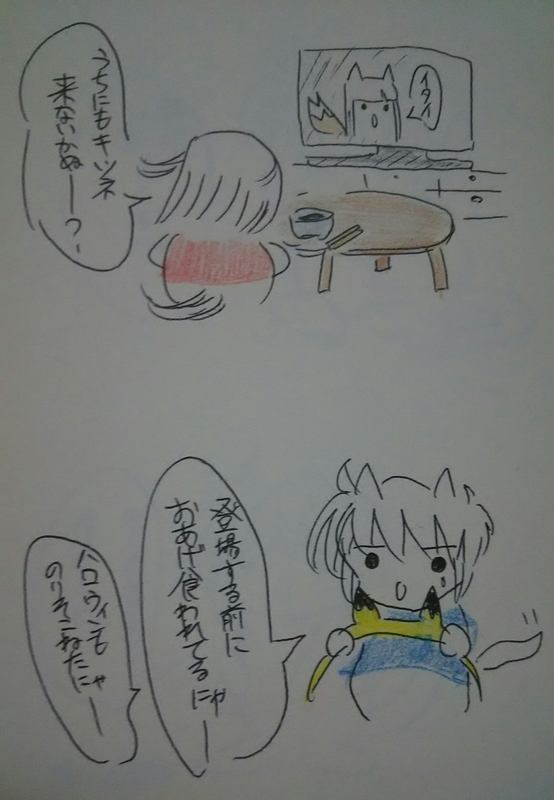 イタイ
うちにもキツネ
来ないかぬー？
登場する前に
おあげ食われてるにゃー
ハロウィンも
のりそこねたにゃー